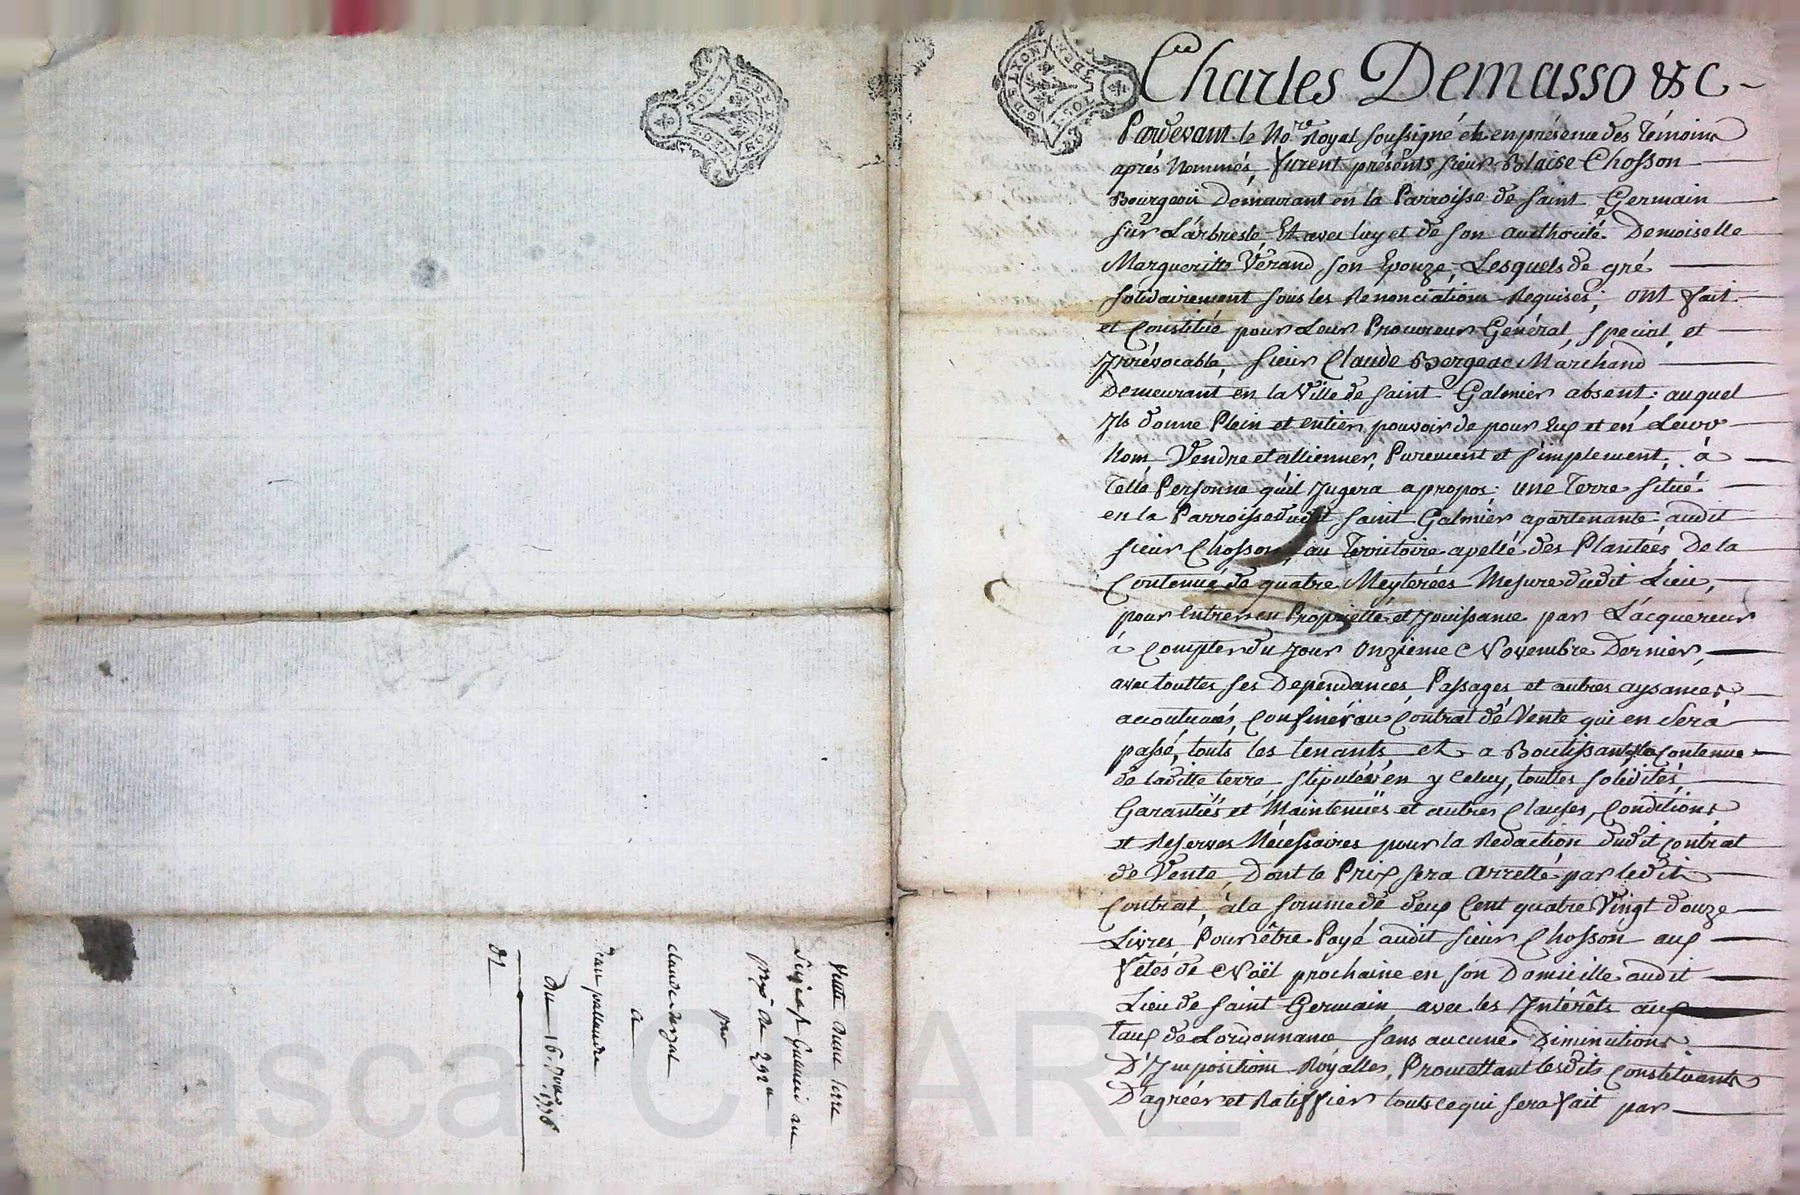 Vente d'une terre
prix de 292ᵗᵗ
par
Claude
a
Jean
Du 16.
1776
GEN DE LYON
Charles Demasso &c
Pardevant le No.re Royal soussigné et en présence des Témoins
aprés Nommés, furent présents sieur Blaise Chosson
Bourgeois Demeurant en la Parroisse de Saint Germain
sur L'arbresle Et avec luy et de son authorité Demoiselle
Margueritte Vérand son Epouze, Lesquels de gré
solidairement sous les Renonciations Requises; ont fait
et Constitué pour Leur Procureur Général, special, et
Irrévocable, sieur Claude Bergeac Marchand
Demeurant en la Ville de saint Galmier absent; auquel
Ils donne Plein et entier pouvoir de pour Eux et en Leurs
Nom Vendre et allienner, Purement et simplement, à
Telle Personne qu'il Jugera apropos; une Terre situé
en la Parroisse dudit saint Galmier apartenante audit
sieur Chosson au Territoire apellé des Plantées De la
Contenue de quatre Meyterées Mesure dudit Lieu,
pour Entrer en Propriette et Jouissance par L'acquereur
à Compter du Jour onzieme Novembre Dernier,
avec touttes ses Dependances Passages et autres aysances
accoutumés, Confinér au Contrat de Vente qui en sera
passé, touts les tenants, et aBoutissant, la Contenue
de laditte terre stipulér en yceluy, touttes solidités,
Garantiës et Maintenuës et autres Clauses, Conditions
et Reserves Nécessaires pour la Redaction dudit Contrat
de Vente, Dont le Prix sera arretté par ledit
Contrat, à la somme de deux Cent quatre Vingt douze
Livres Pour être Payé audit sieur Chosson aux
fêtes de Noël prochaine en son Domicille audit
Lieu de saint Germain, avec les Intérêts aux
taux de L'ordonnance sans aucune Diminutions
D'Impositions Royalles, Promettant lesdits Constituants
D'agréer et Ratiffier touts ce qui sera fait par
Pascal CHAREYRON